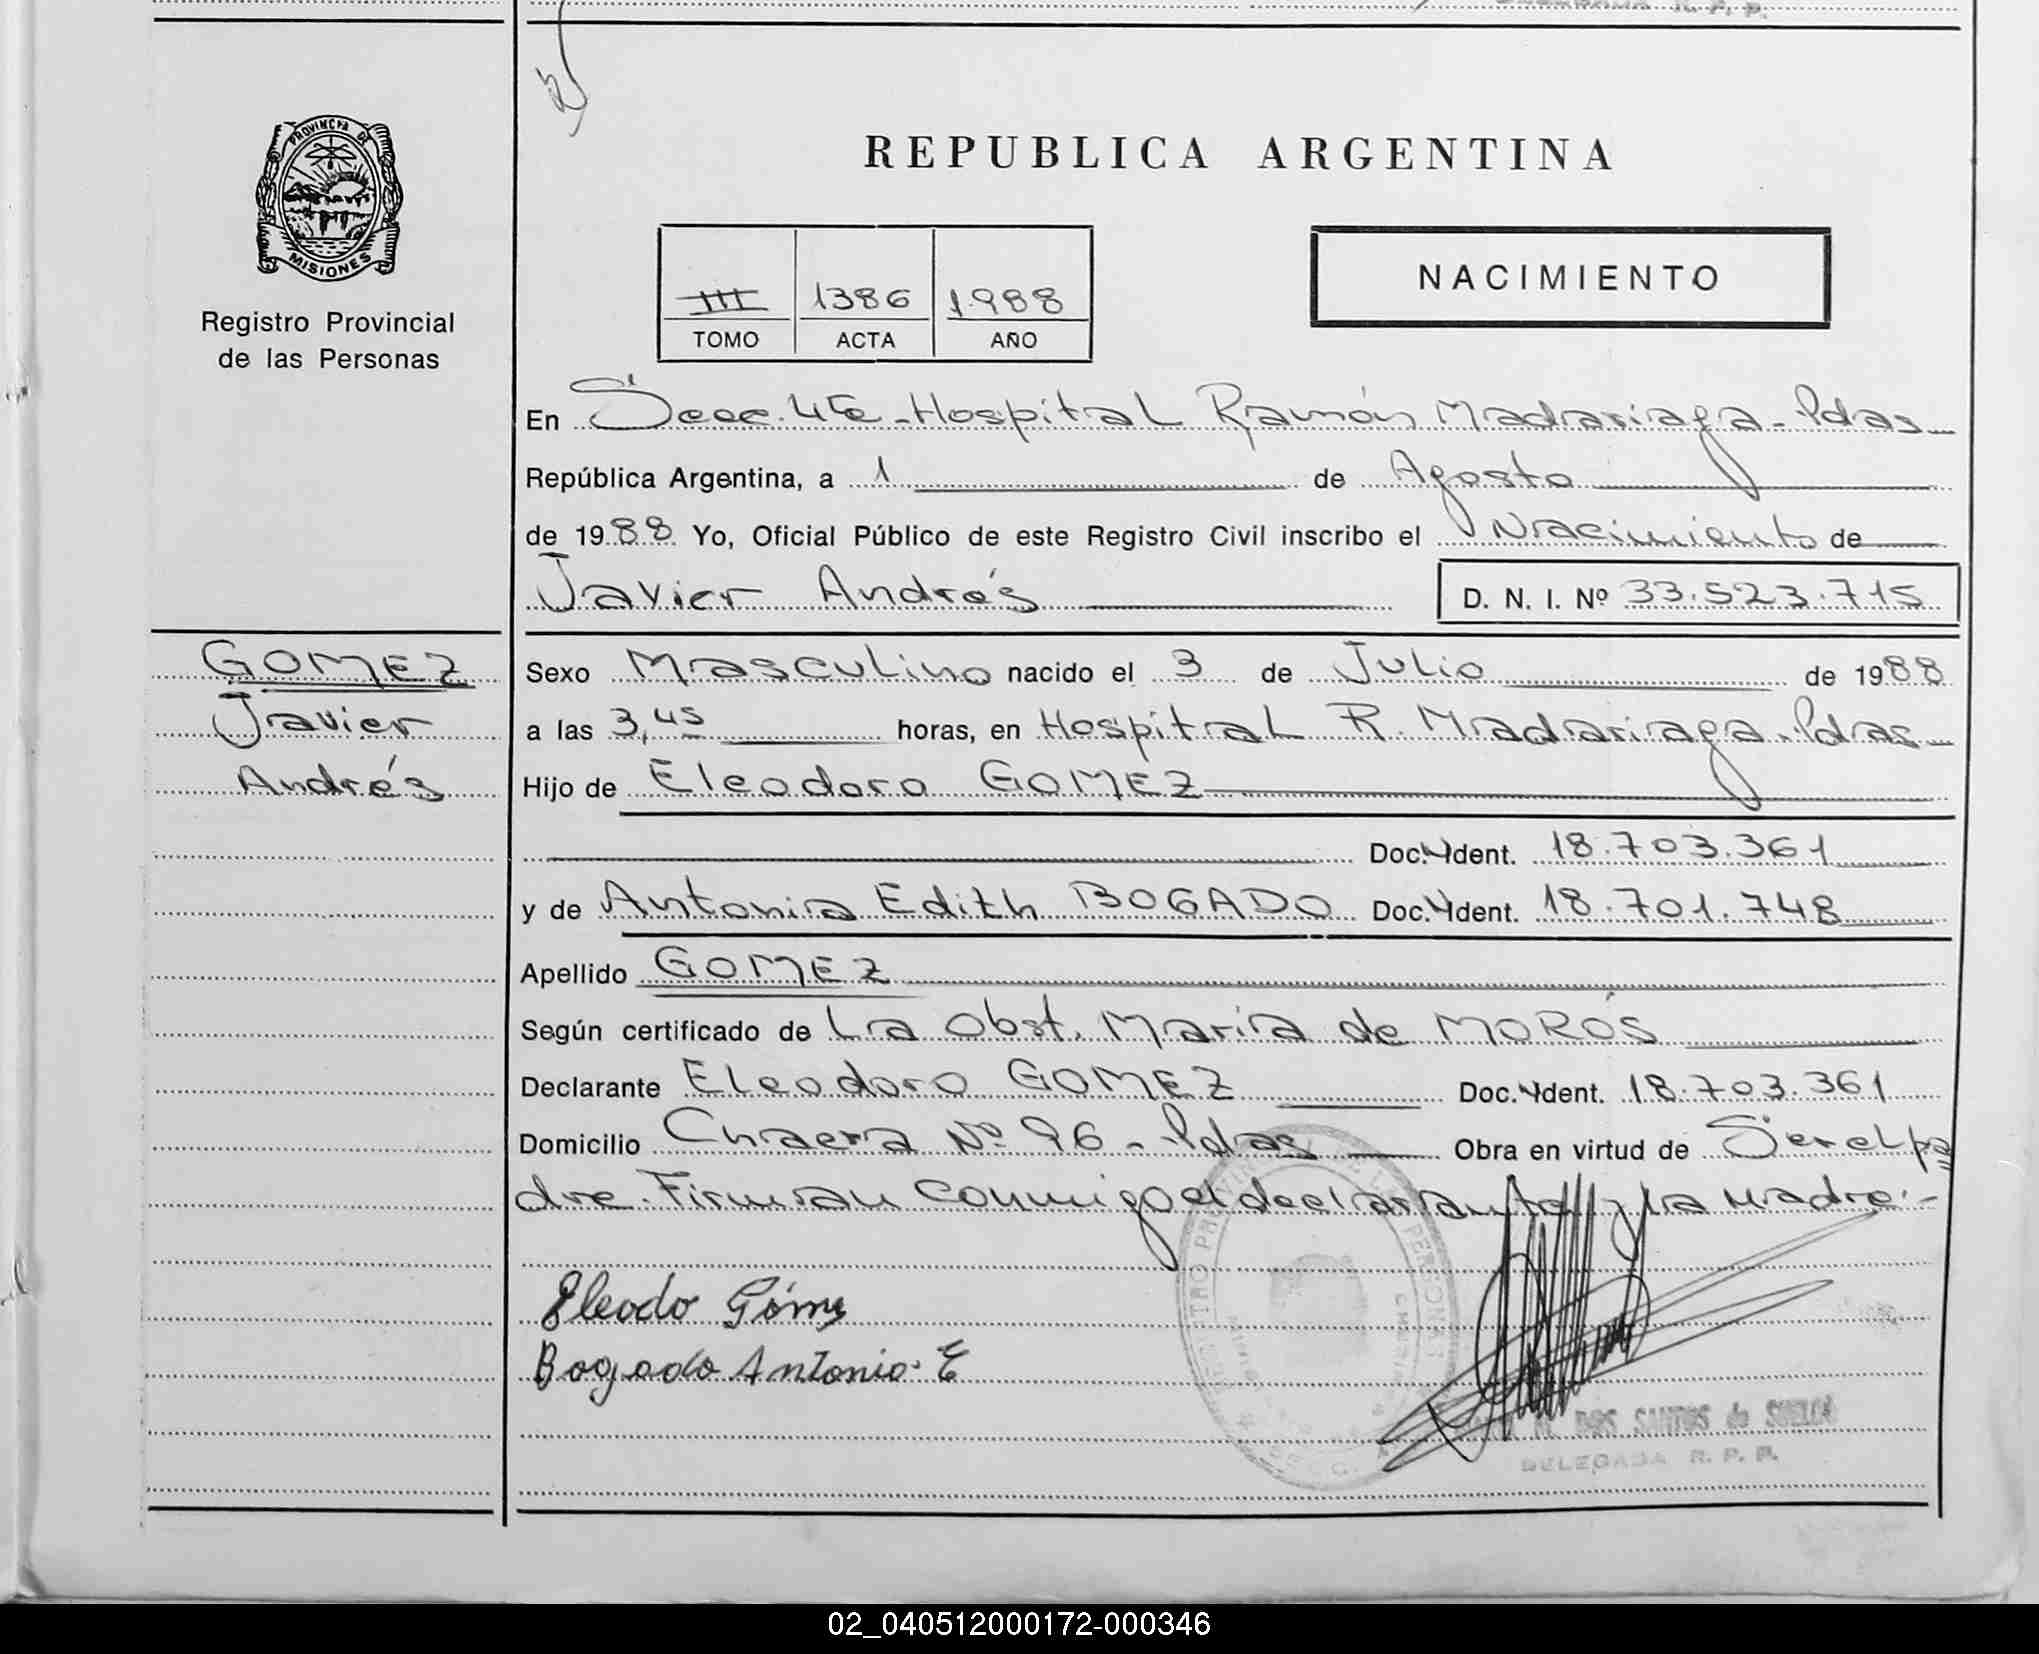 PROVINCIA DE
MISIONES
Registro Provincial
de las Personas
REPUBLICA ARGENTINA
III 1386 1988
TOMO ACTA AÑO
NACIMIENTO
En Secc. 4ta - Hospital Ramón Madariaga - Pdas
República Argentina, a 1 de Agosto
de 1988 Yo, Oficial Público de este Registro Civil inscribo el Nacimiento de
Javier Andrés D. N. I. Nº 33.523.715
GOMEZ
Javier
Andrés
Sexo Masculino nacido el 3 de Julio de 1988
a las 3,45 horas, en Hospital R. Madariaga - Pdas
Hijo de Eleodoro GOMEZ
Doc. Ydent. 18.703.361
y de Antonia Edith BOGADO Doc. Ydent. 18.701.748
Apellido GOMEZ
Según certificado de La Obst. María de MORÓS
Declarante Eleodoro GOMEZ Doc. Ydent. 18.703.361
Domicilio Chacra Nº 96 - Pdas Obra en virtud de Ser el pa
dre. Firman conmigo el declarante y la Madre.-
Eleodo Góme
Bogado Antonia E
DOS SANTOS de
DELEGADA R. P. P.
02_040512000172-000346